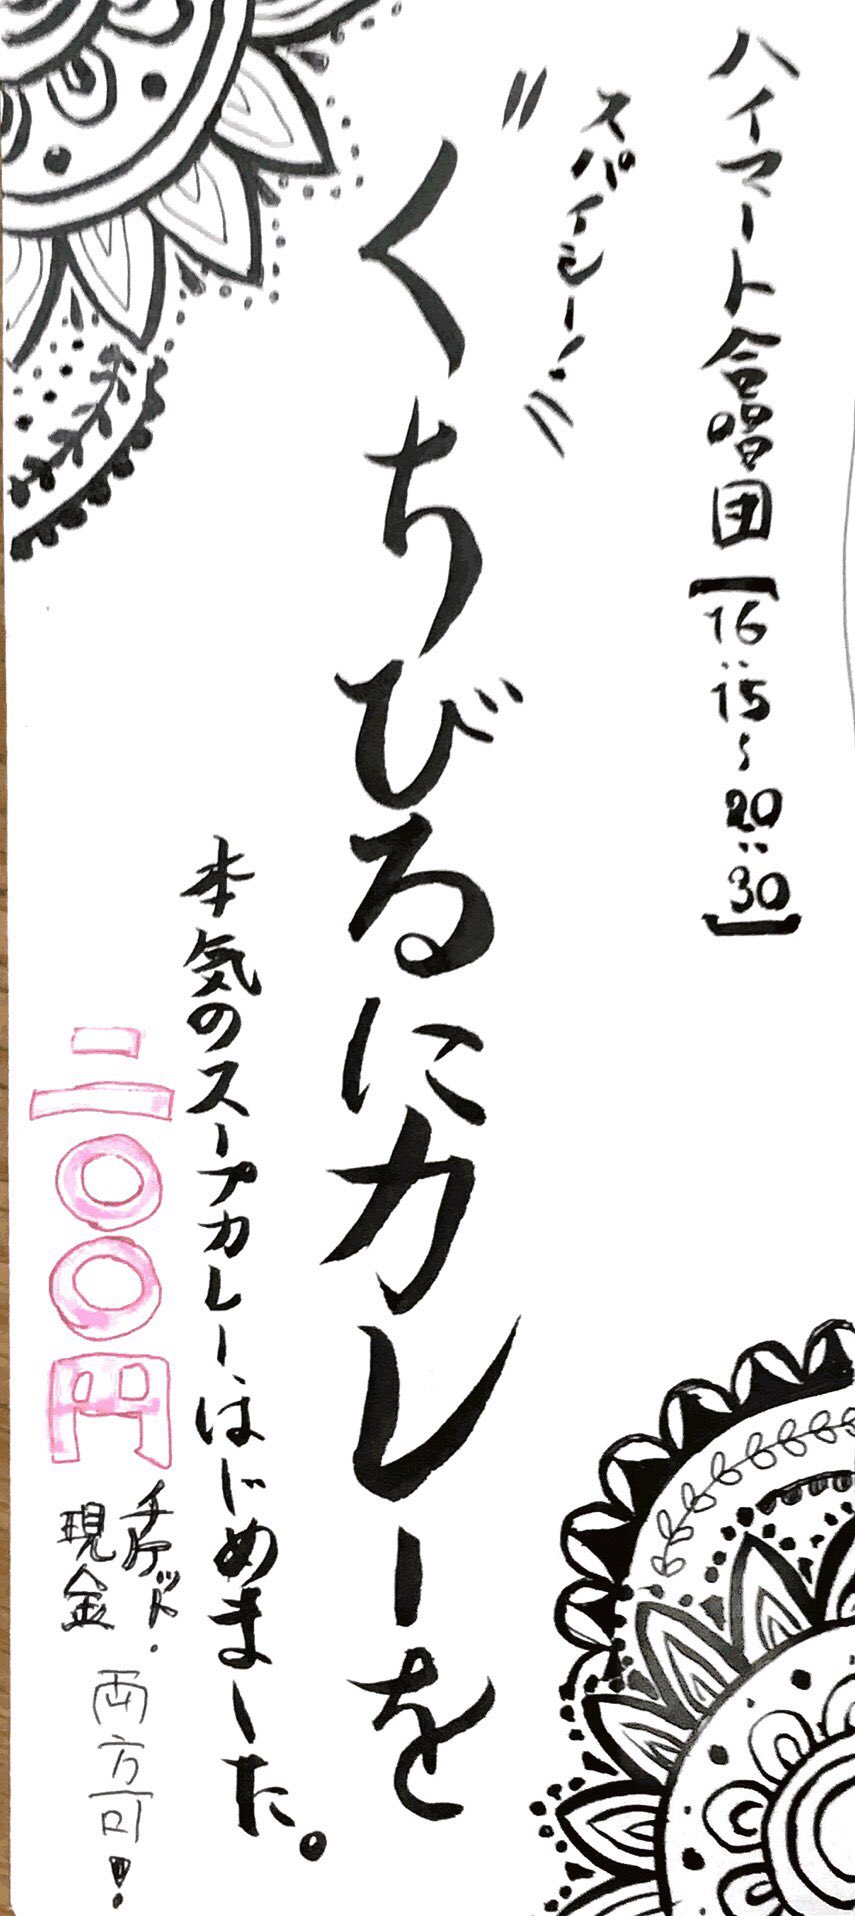 ハイマート合唱団【16:15~20:30】
スパイシー!
くちびるにカレーを
本気のスープカレーはじめました。
二〇〇円
チケット・
現金
両方可!